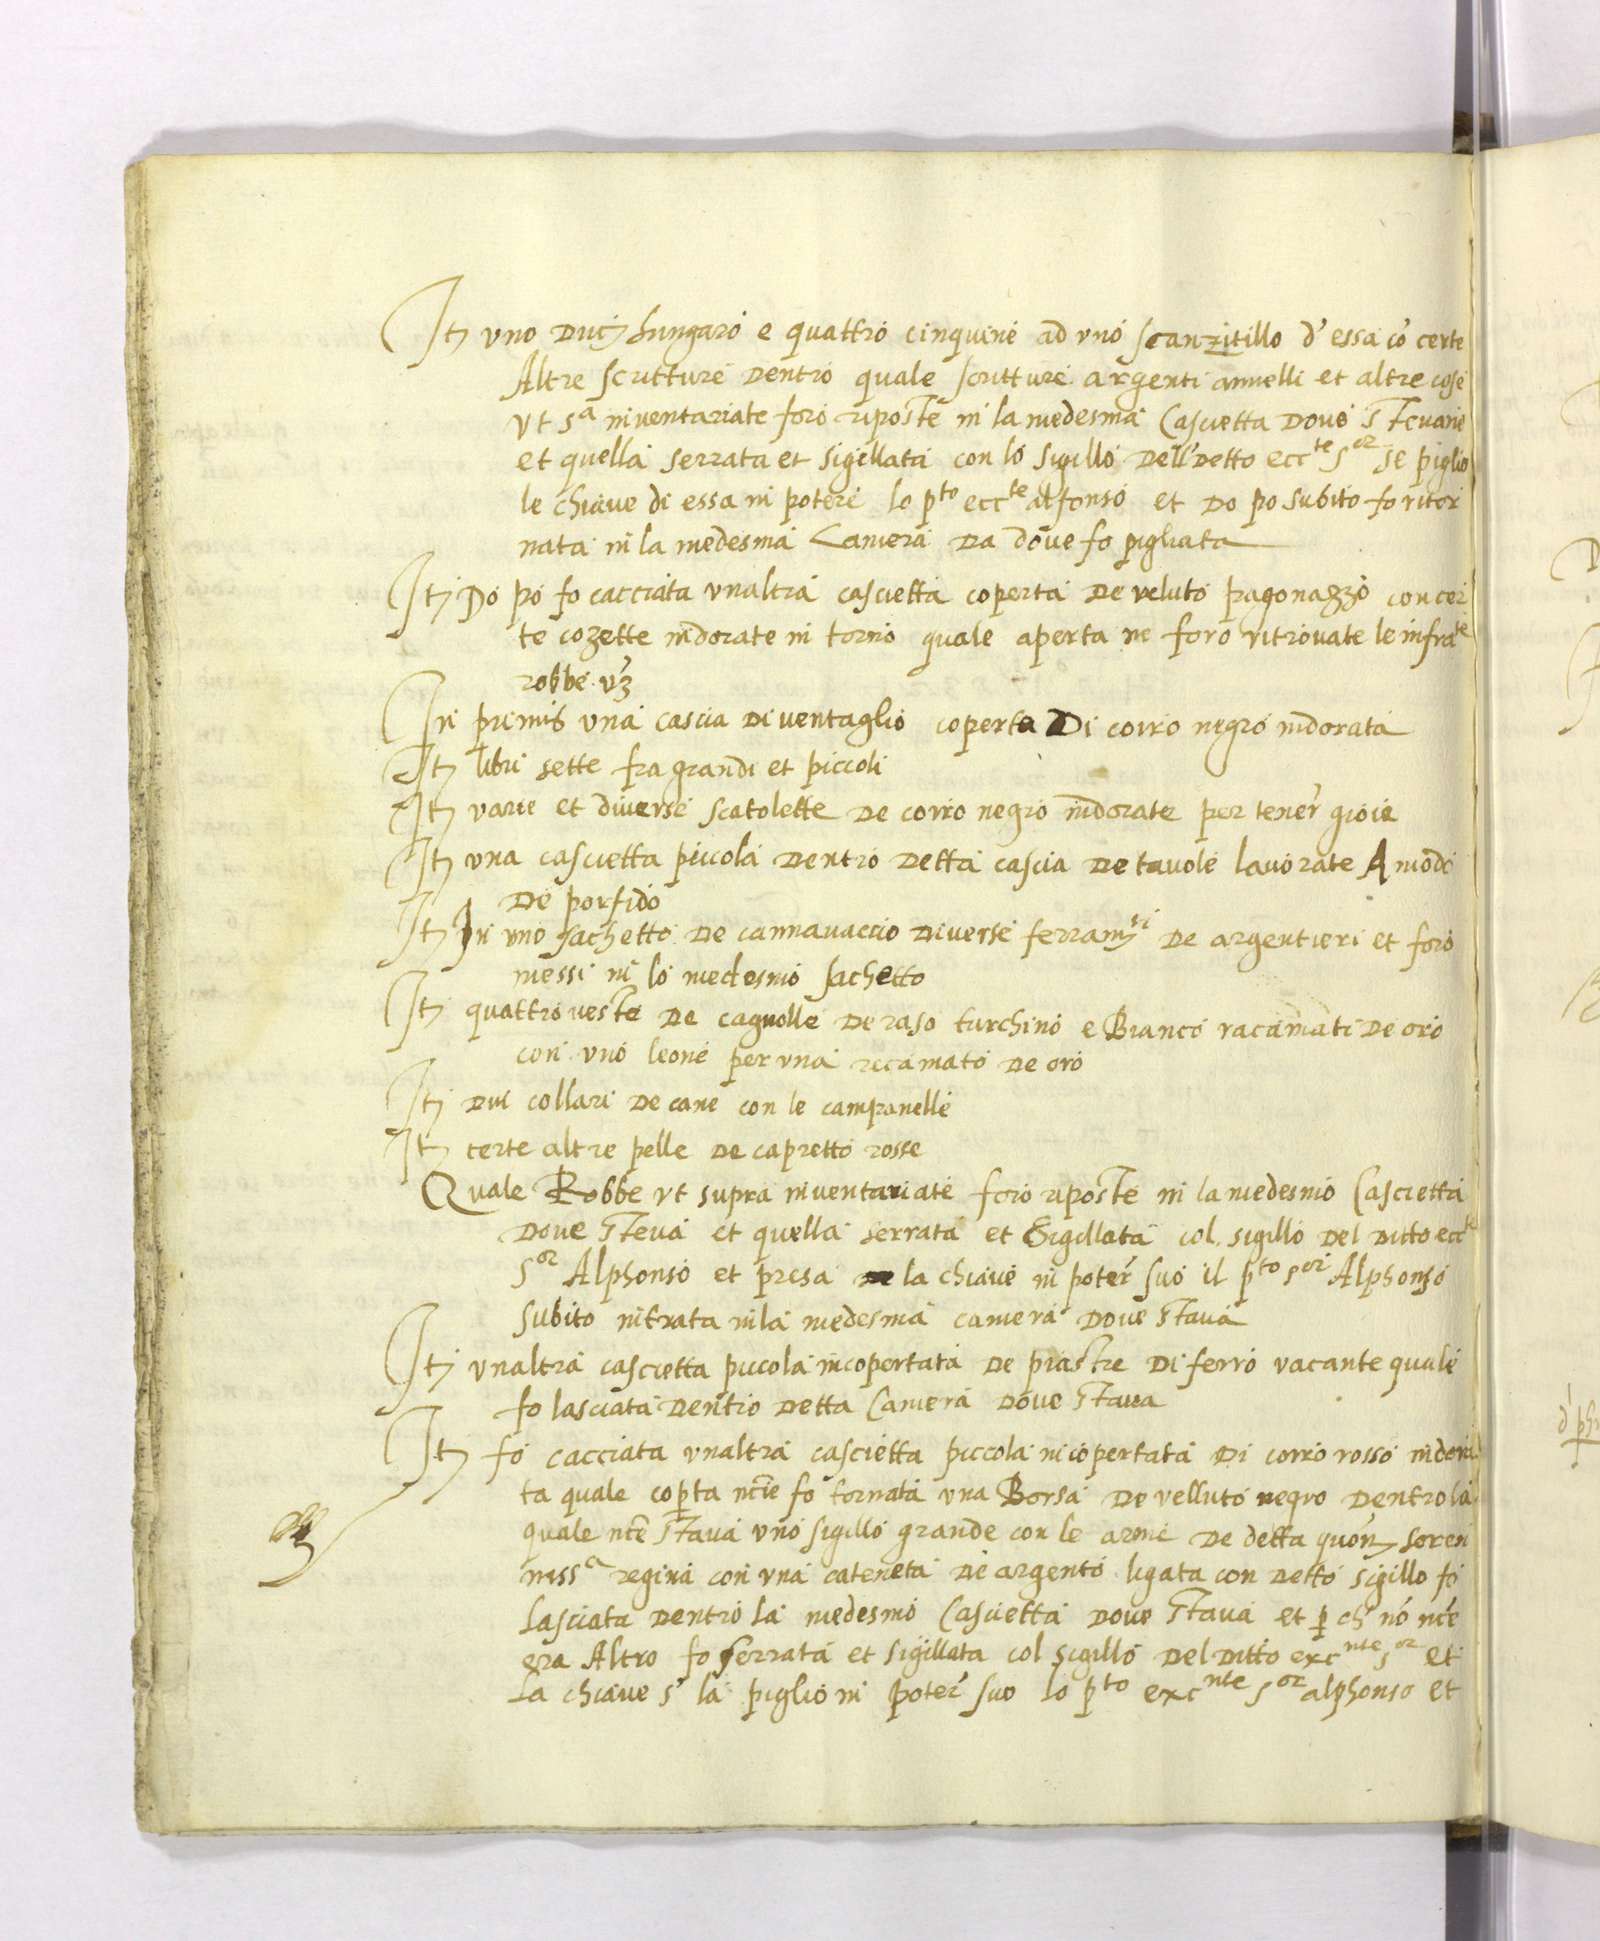 Itȝ uno Ducȝ hungaro e quattro cinquine ad uno scanzitillo d' essa cō certe
Altre scritture dentro quale scritture argenti annelli et altre cose
ut s.ª inventariate foro riposte in la medesma Cascietta dove stevano
et quella serrata et sigillata con lo sigillo dell'detto ecc.te s.or se piglio
le chiave di essa in potere lo p.to ecc.te alfonso et do po subito fo ritor
nata in la medesma Camera da dove fo pigliata
Itȝ Do po fo cacciata unaltra cascietta coperta de veluto pagonazzo con cer
te cozette indorate in torno quale aperta ne foro ritrovate le infra.te
robbe vȝ
In primis una cascia di ventaglio coperta Di corro negro indorata
Itȝ libri sette fra grandi et piccoli
Itȝ varie et diverse scatolette de corro negro indorate per tener' gioie
Itȝ una cascietta piccola dentro detta cascia de tavole lavorate A modo
de porfido
Itȝ In uno sachetto de cannavaccio diverse ferramȝ.ti de argentieri et foro
messi in lo medesmo sachetto
Itȝ quattro veste de cagnolle de raso turchino e Bianco racamati de oro
con uno leone per una recamato de oro
Itȝ dui collari de cane con le campanelle
Itȝ certe altre pelle de capretto rosse
Quale Robbe ut supra inventariate foro riposte in la medesmo Cascietta
dove steva et quella serrata et Sigillata col sigillo del ditto ecc.te
s.or Alphonso et presa la chiave in poter' suo il p.to s.or Alphonso
subito intrata in la medesma camera dove stava
Itȝ unaltra cascietta piccola incopertata de piastre di ferro vacante quale
fo lasciata dentro detta Camera dove stava
Itȝ fo cacciata unaltra cascietta piccola incopertata di corro rosso indora
ta quale coperta nc̄e fo tornata una Borsa de velluto negro dentro la
quale nc̄e stava uno sigillo grande con le arme de detta quonȝ sereni
niss.ª regina con una cateneta de argento ligata con detto sigillo fo
lasciata dentro la medesmo Cascietta dove stava et p ch' nō nc̄e
era Altro fo serrata et sigillata col sigillo del ditto exc.nte s.or et
la chiave s' la piglio in poter' suo lo p.to exc.nte s.or alphonso et